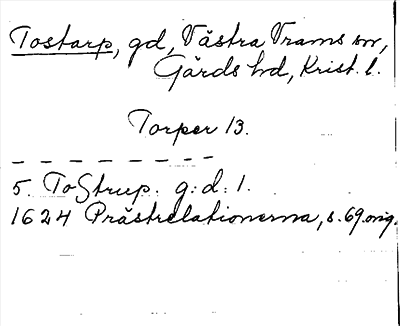 Tostarp, gd, Västra Vrams sn,
Gärds hd, Krist. l.
Torper 13.
5. ToStrup. g: d: 1.
1624 Prästrelationerna, s. 69 orig.